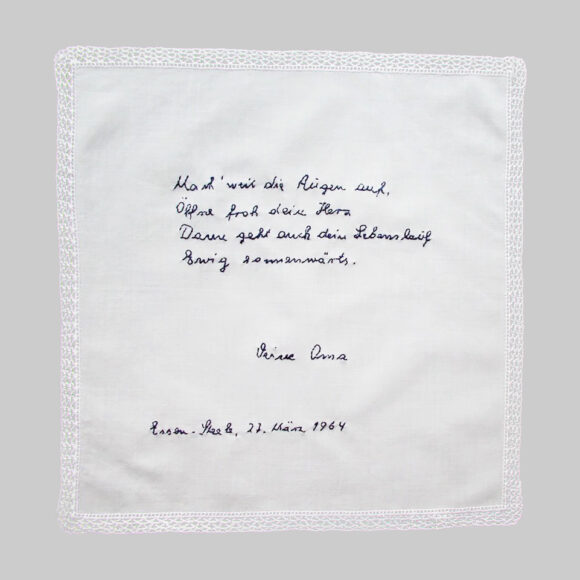 Mach' weit die Augen auf,
Öffne froh dein Herz
Dann geht auch dein Lebenslauf
Ewig sonnenwärts.
Deine Oma
Essen-Steele, 27. März 1964